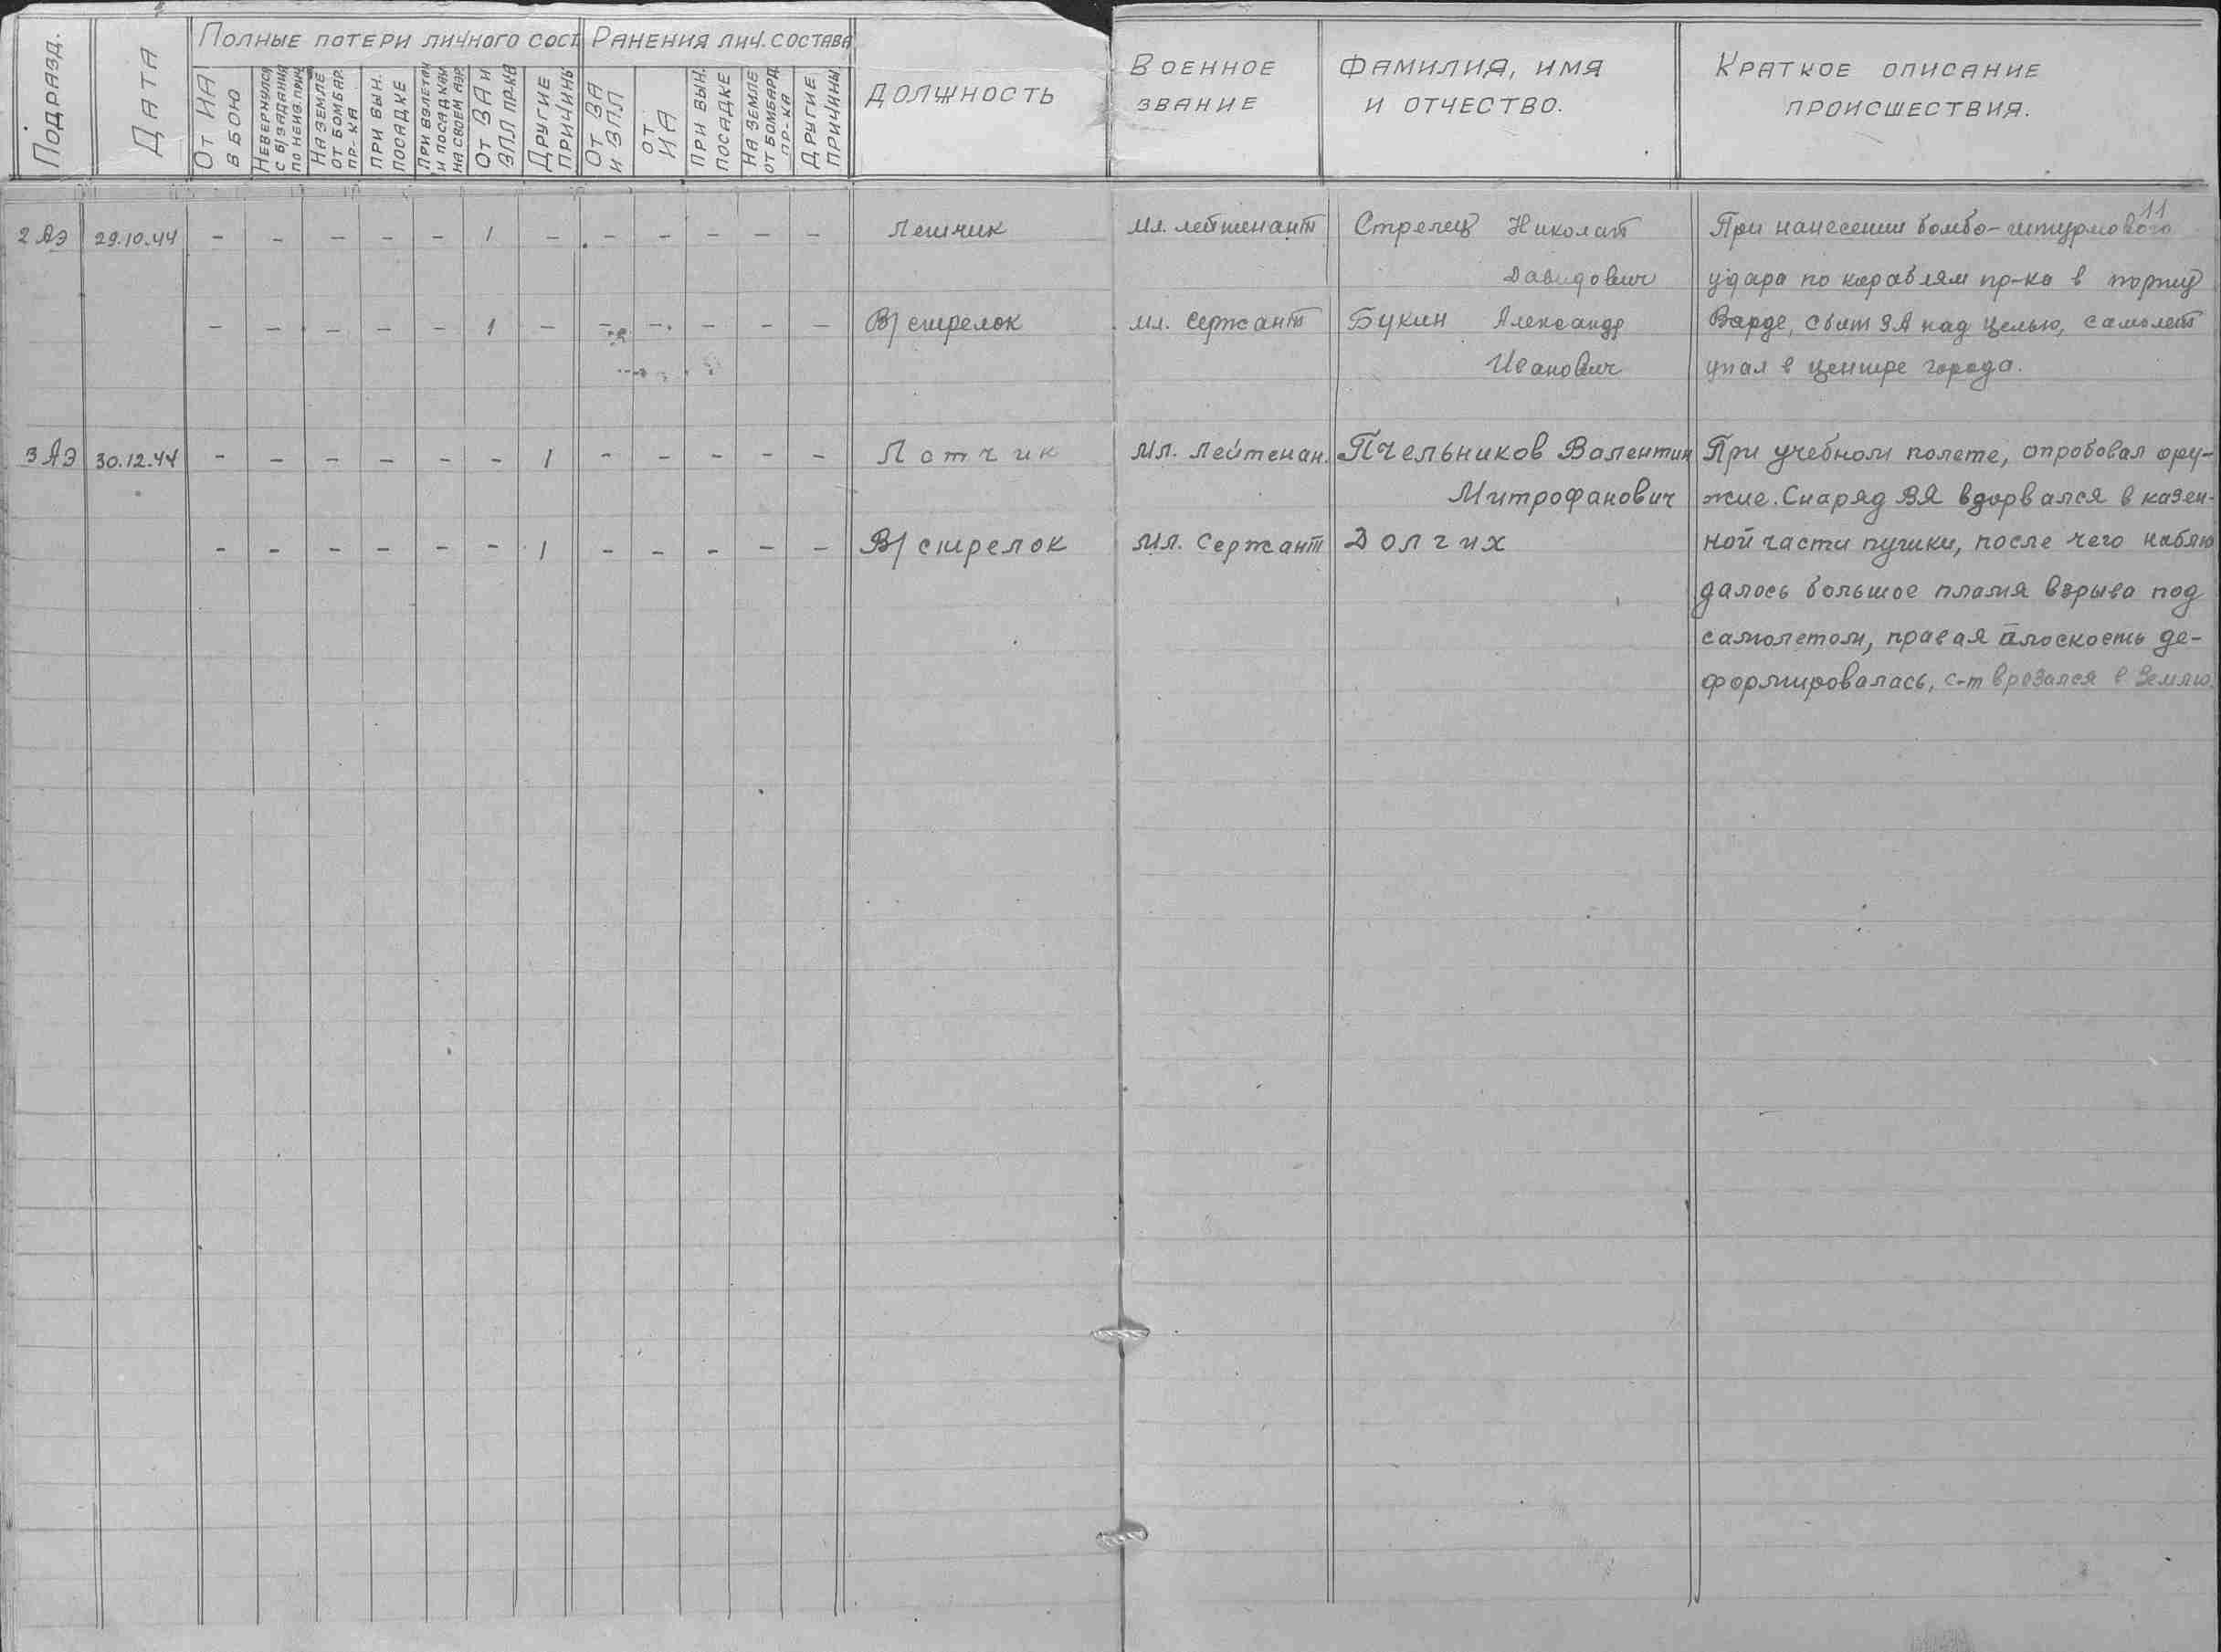 Подразд.
Дата
Полные потери личного сост.
От ИА в бою
Невернулся с б/задания по неизв. прич.
На земле от бомбар. пр-ка
при вын. посадке
При взлетах и посадках на своем аэр.
От ЗА и ЗПЛ пр-ка
Другие причины
Ранения лич. состава
От ЗА и ЗПЛ
От ИА
При вын. посадке
На земле от бомбард. пр-ка
Другие причины
Должность
Военное
звание
Фамилия, имя
и отчество.
Краткое описание
происшествия.
11
2 АЭ 29.10.44 - - - - - 1 - - - - - - Летчик Мл. лейтенант Стрелец Николай При нанесении бомбо-штурмового
Давидович удара по кораблям пр-ка в порту
- - - - - 1 - - - - - - В/стрелок Мл. Сержант Букин Александр Варде, сбит ЗА над целью, самолет
Иванович упал в центре города.
3 АЭ 30.12.44 - - - - - - 1 - - - - - Летчик Мл. Лейтенан. Пчельников Валентин При учебном полете, опробовал ору-
Митрофанович жие. Снаряд ВЯ взорвался в казен-
- - - - - - 1 - - - - - В/стрелок Мл. Сержант Долгих ной части пушки, после чего наблю
далось большое пламя взрыва под
самолетом, правая плоскость де-
формировалась, с-т врезался в землю.